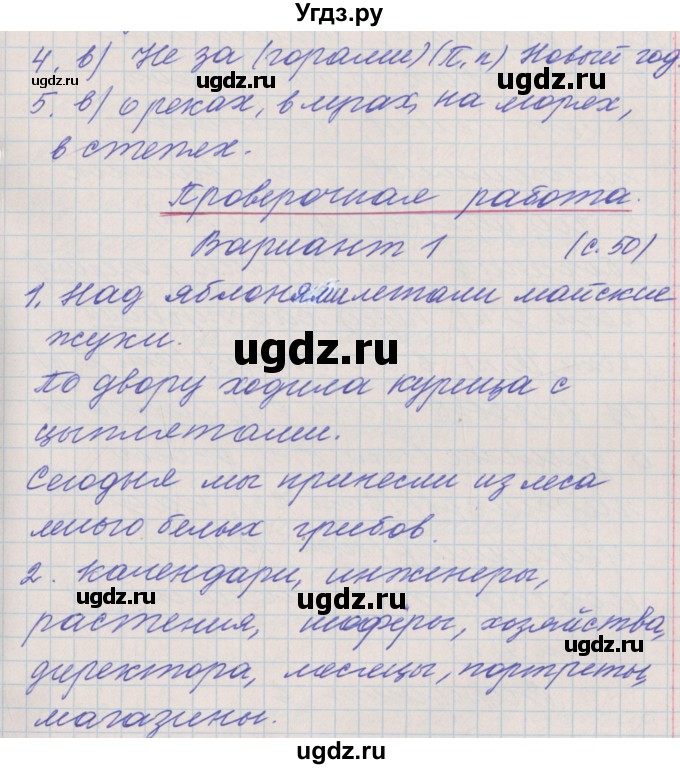 Угдз.ру
4. в) Не за (горами) (П.п) Новый год.
5. в) о реках, в лугах, на морях,
в степях.
Проверочная работа.
Вариант 1 (с. 50)
1. Над яблонями летали майские
жуки.
ugdz.ru ugdz.ru
По двору ходила курица с
цыплятами.
Сегодня мы принесли из леса
много белых грибов.
2. Календари, инженеры,
ugdz.ru ugdz.ru
растения, шофёры, хозяйства,
директора, месяцы, портреты,
магазины.
ugdz.ru